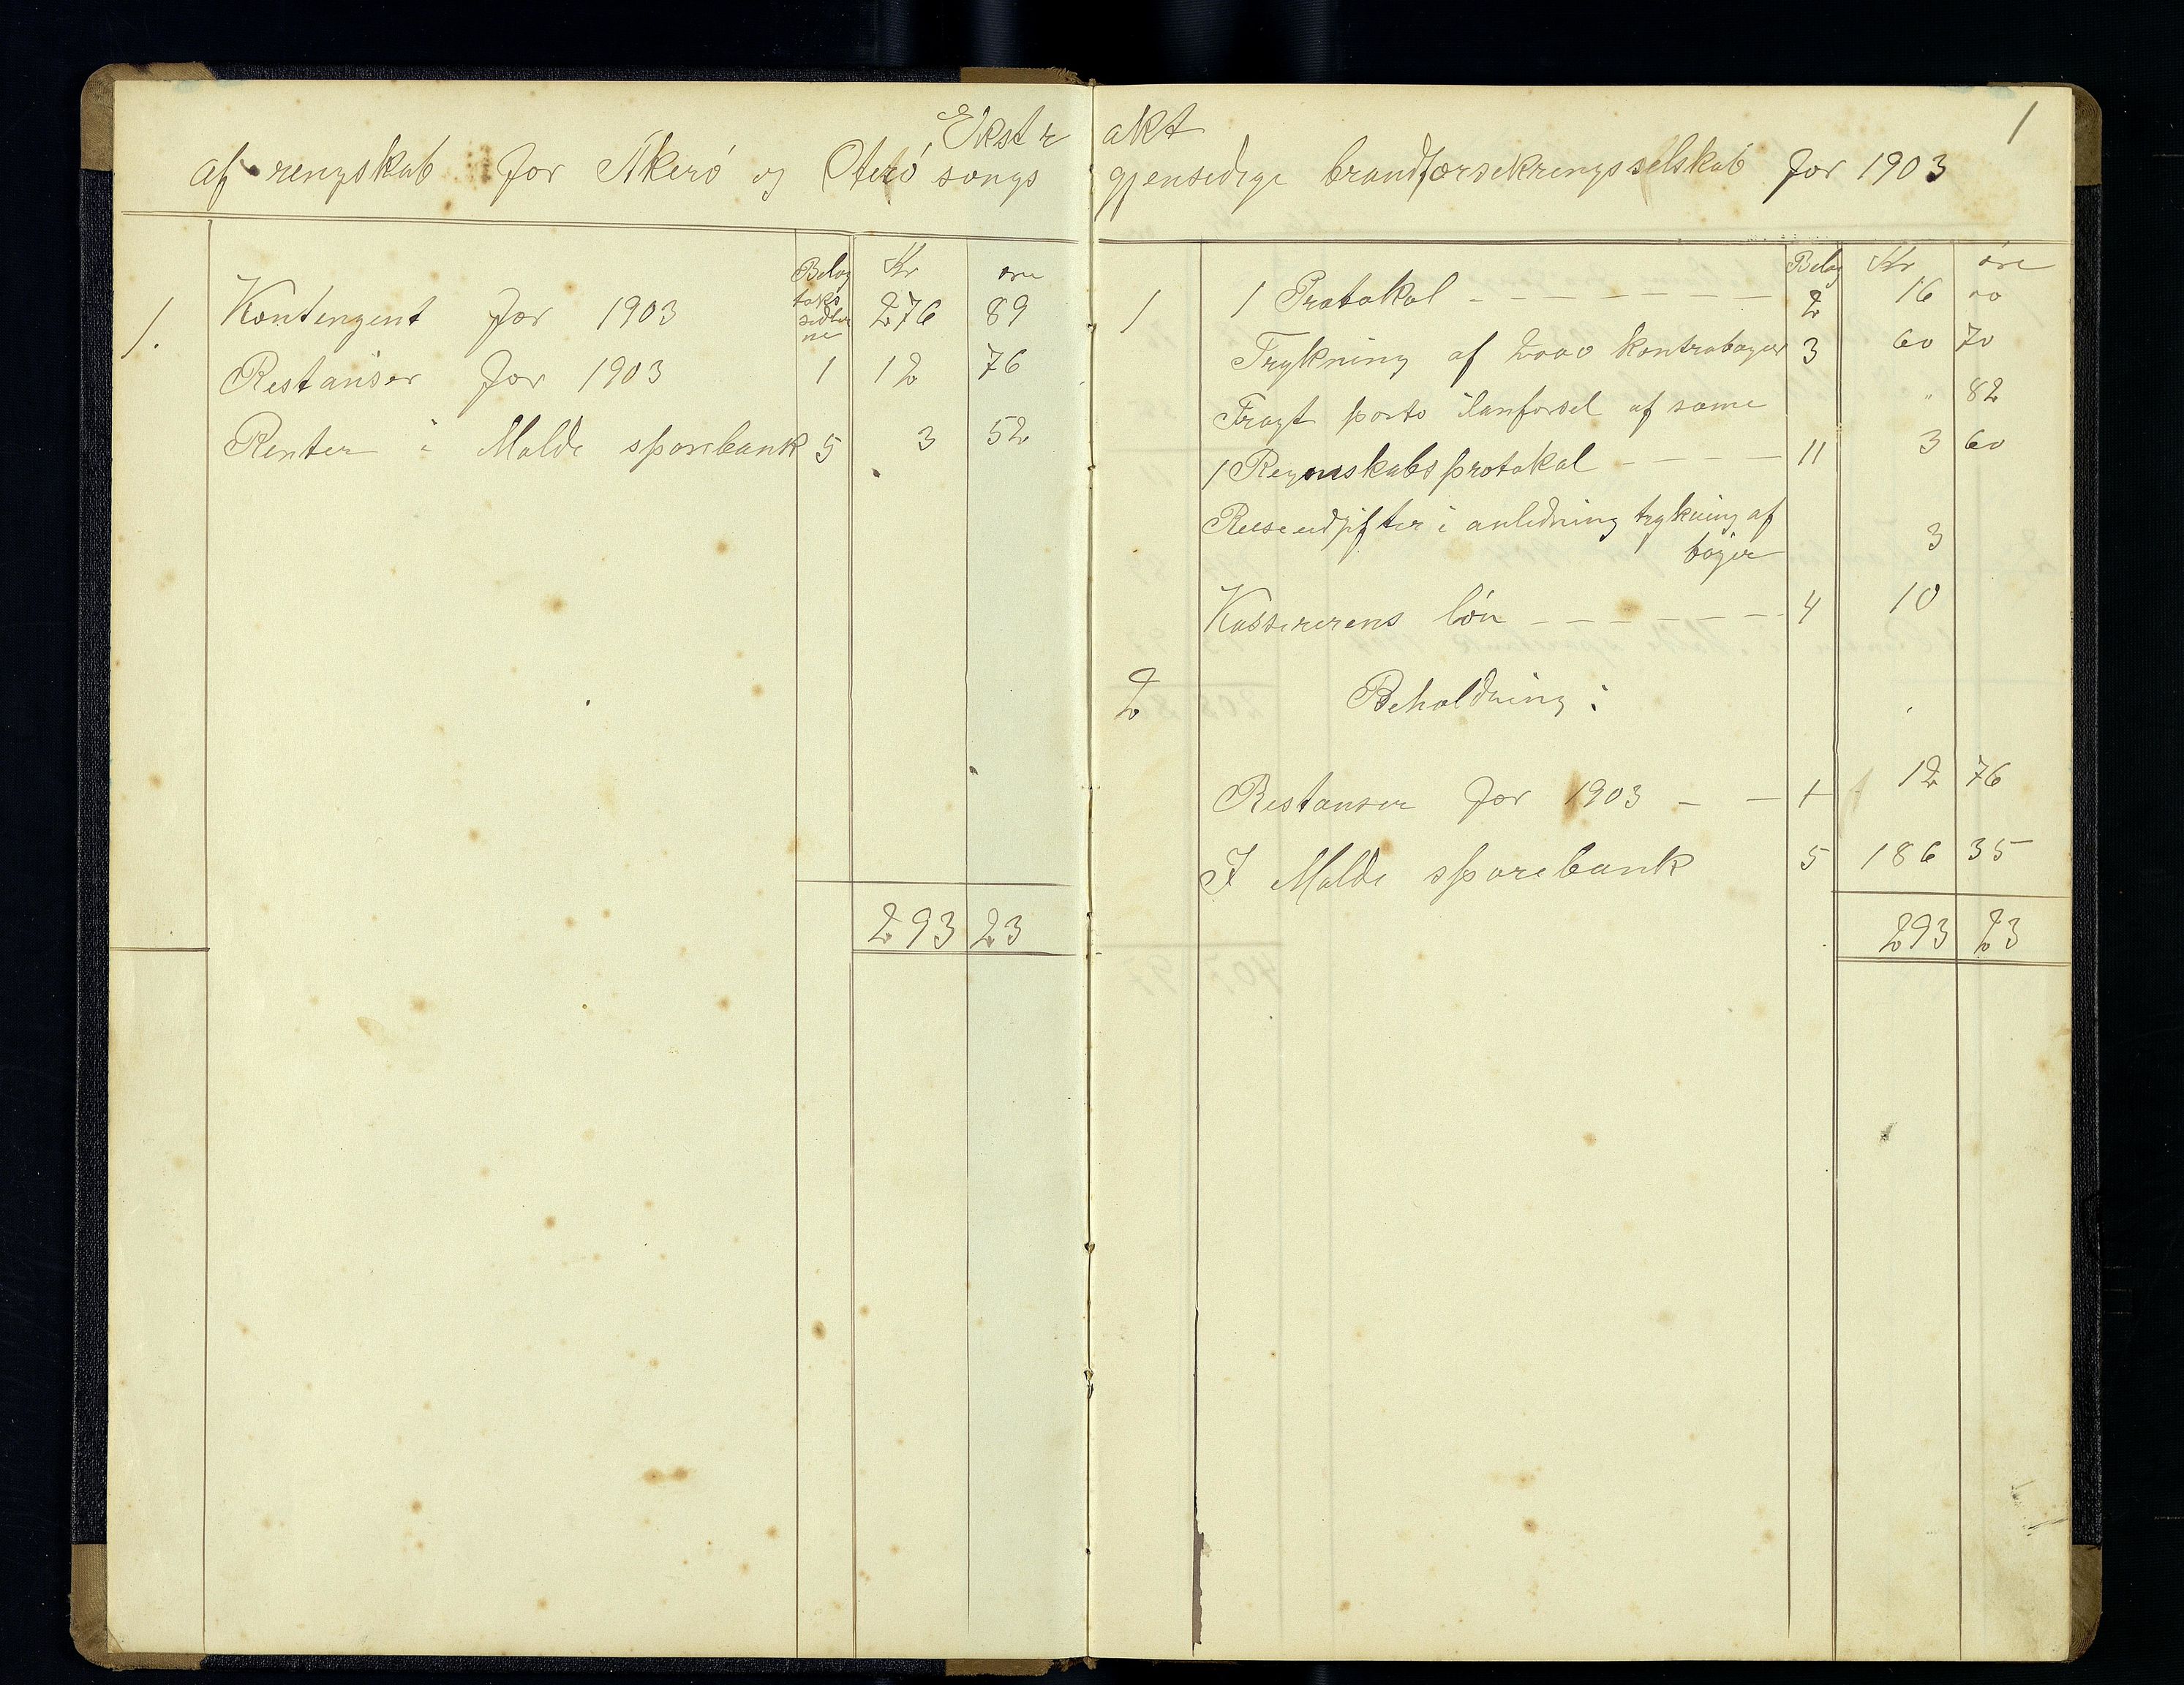 Ekstr akt
1
af rengskab for Åkerö og Oterö songs gjensedige brandforsekrengsselskab for 1903
Belag Kr øre
1. Kontengent for 1903 taks sedler ne 276 89
Restanser for 1903 1 12 76
Renter i Molde sparebank 5 3 52
293 23
Belag Kr öre
1 1 Protokol 2 16 00
Trykning af 2000 kontrabøger 3 60 70
Fragt porto af same " 82
1 Regnskabsprotokol 11 3 60
Reiseudgifter i anledning trykning af
bøger 3
Kassererens lön 4 10
2 Beholdning:
Restanser for 1903 1 12 76
I Molde sparebank 5 186 35
293 23